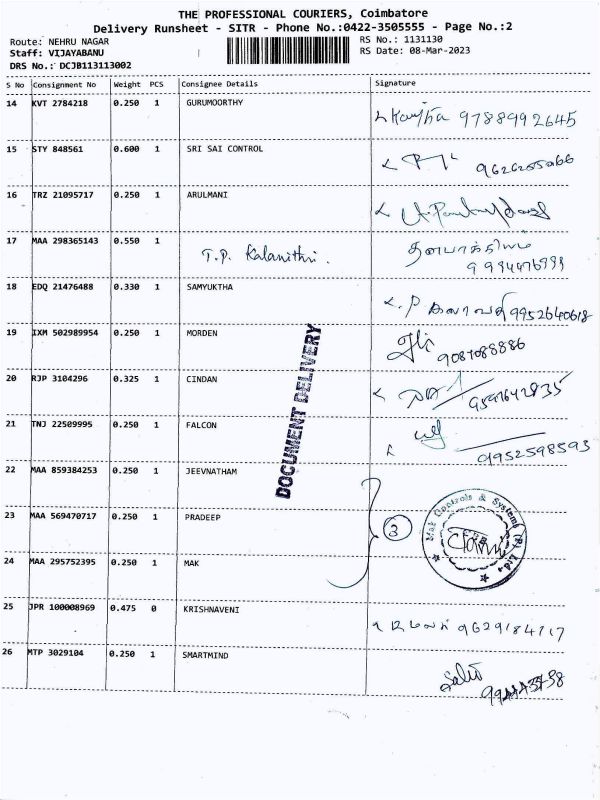 THE PROFESSIONAL COURIERS, Coimbatore
Delivery Runsheet - SITR - Phone No.:0422-3505555 - Page No.:2
Route: NEHRU NAGAR RS No.: 1131130
Staff: VIJAYABANU RS Date: 08-Mar-2023
DRS No.: DCJB113113002
S No Consignment No Weight PCS Consignee Details Signature
14 KVT 2784218 0.250 1 GURUMOORTHY 9788992645
15 STY 848561 0.600 1 SRI SAI CONTROL
16 TRZ 21095717 0.250 1 ARULMANI
17 MAA 298365143 0.550 1 T.P. Kalanithi.
18 EDQ 21476488 0.330 1 SAMYUKTHA 9952640618
19 IXM 502989954 0.250 1 MORDEN 9087088886
20 RJP 3104296 0.325 1 CINDAN
21 TNJ 22509995 0.250 1 FALCON 9952598593
DOCUMENT DELIVERY
22 MAA 859384253 0.250 1 JEEVNATHAM
23 MAA 569470717 0.250 1 PRADEEP 3
Mak Controls & Systems (P) Ltd.,
24 MAA 295752395 0.250 1 MAK
25 JPR 100008969 0.475 0 KRISHNAVENI 9629184717
26 MTP 3029104 0.250 1 SMARTMIND